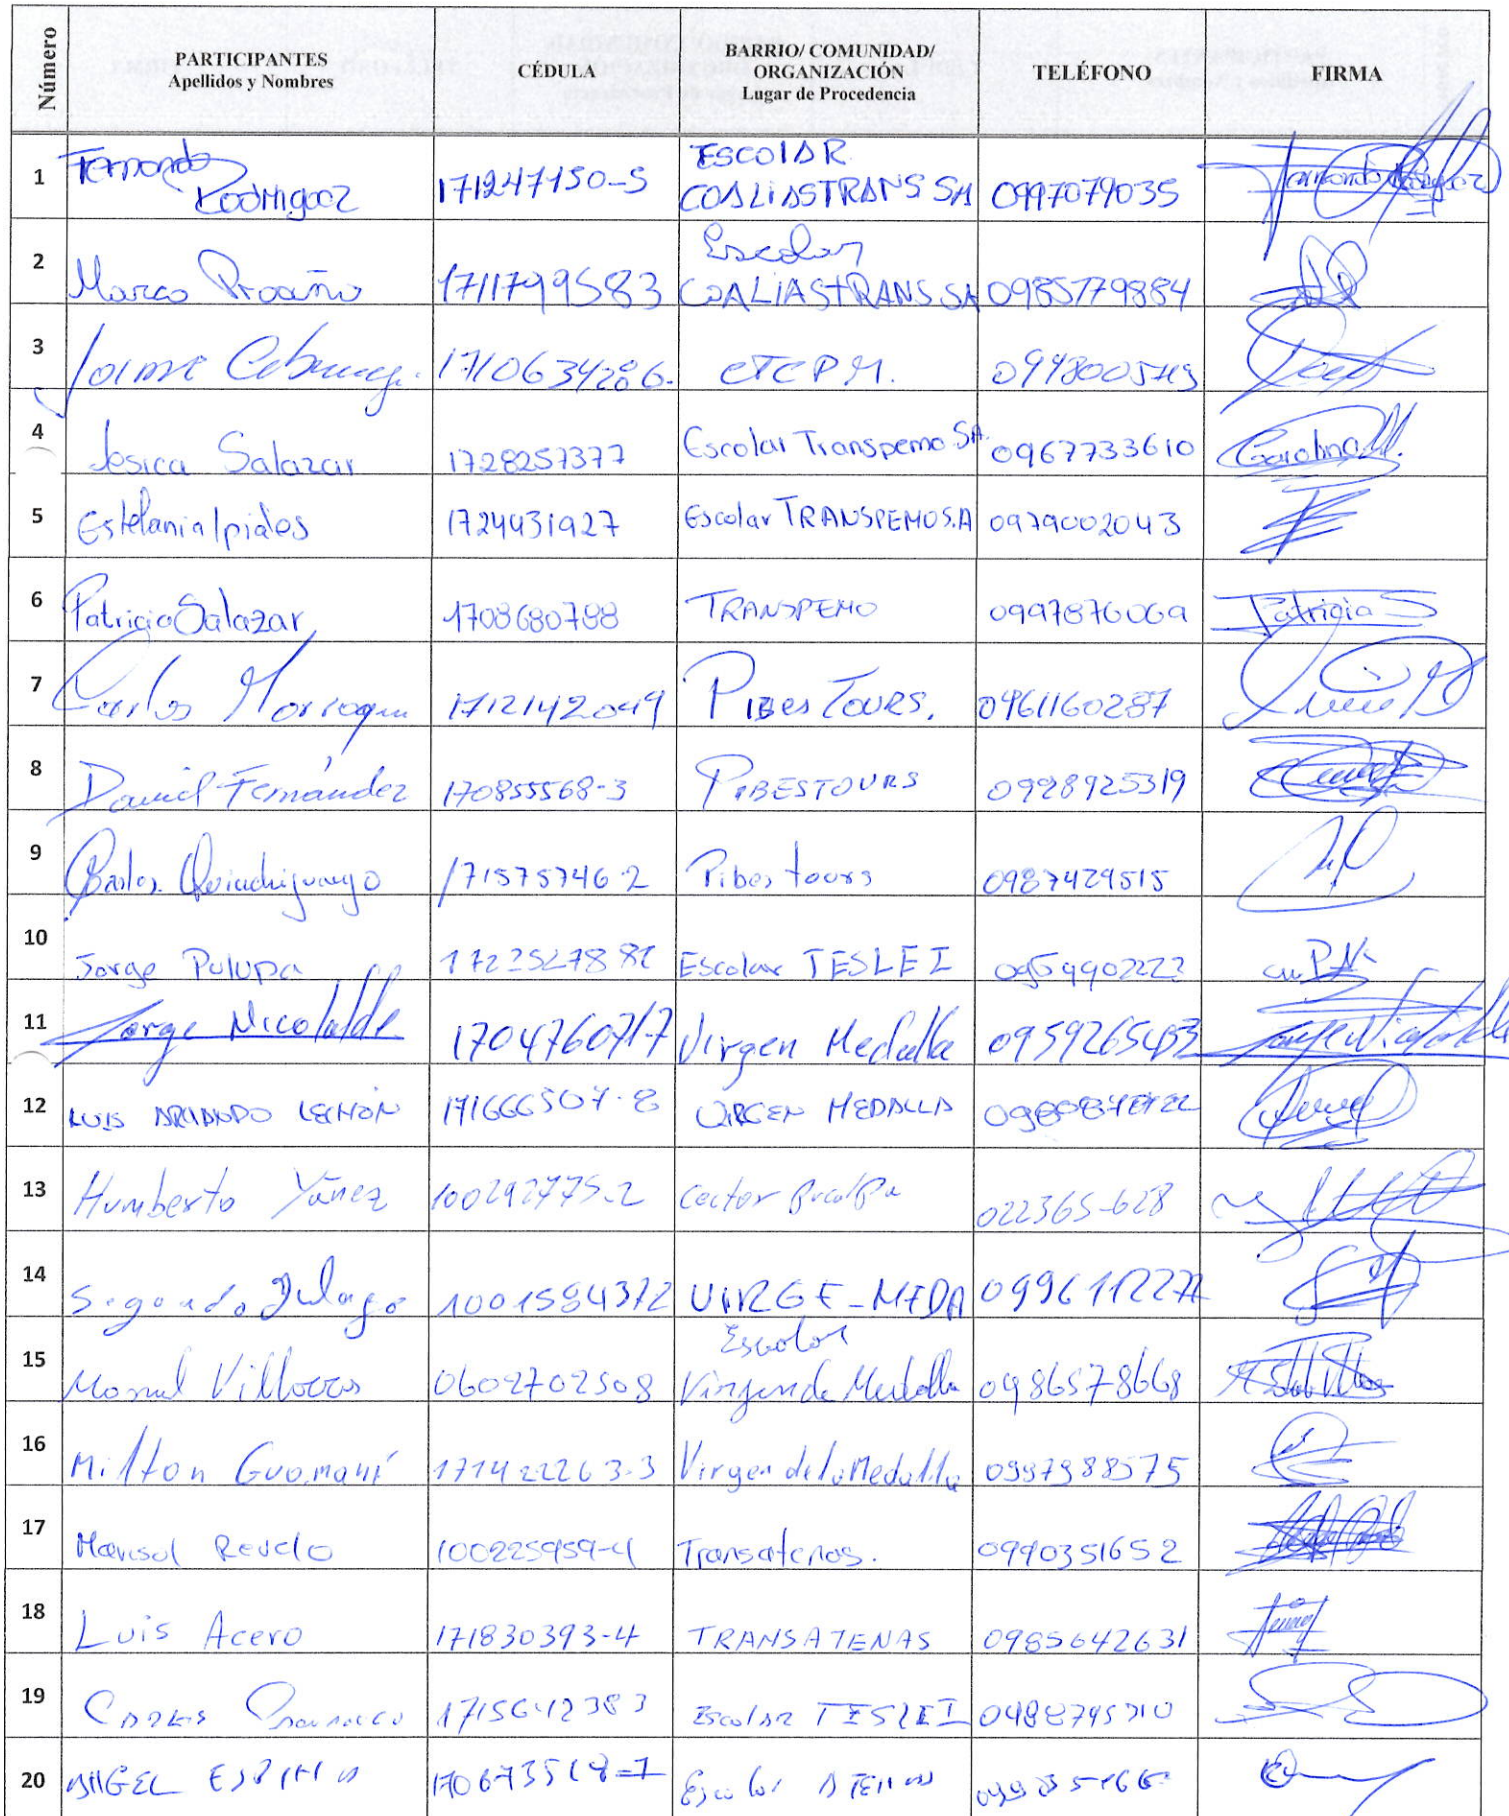 Número
PARTICIPANTES
Apellidos y Nombres
CÉDULA
BARRIO/ COMUNIDAD/
ORGANIZACIÓN
Lugar de Procedencia
TELÉFONO
FIRMA
1
Fernando
Rodriguez
171247150-5
ESCOLAR
COALIASTRANS SA
0997079035
2
Marco Proaño
1711799583
Escolar
COALIASTRANS SA
0985779884
3
Jaime
1710634286.
CTCPM.
4
Jesica Salazar
1728257377
Escolar Transpemo SA.
0967733610
5
Estefania
1724431927
Escolar TRANSPEMO S.A
0979002043
6
Patricia Salazar
1708680788
TRANSPEMO
0997876069
Patricia S
7
Carlos
1712142049
PIBES TOURS.
0961160287
8
David Fernández
170855568-3
PIBESTOURS
0998925319
9
171575746-2
Pibes tours
0987429515
10
Jorge Pulupa
Escolar TESLEI
0959902222
11
Jorge Nicolalde
170476071-7
Virgen Medalla
12
LUIS ARMANDO LECHÓN
171666507-8
VIRGEN MEDALLA
13
Humberto Yánez
100292775-2
022365-628
14
Segundo
1001584372
VIRGE-MEDA
15
Manuel
0602702508
Escolar
Virgen de Medalla
0986578668
16
Milton Guamaní
171422263-3
Virgen de la Medalla
0987988575
17
Marisol Revelo
100225959-4
Transatenas.
0990351652
18
Luis Acero
171830393-4
TRANSATENAS
0985642631
19
1715642383
Escolar TESLEI
20
ANGEL
Escolar ATENAS